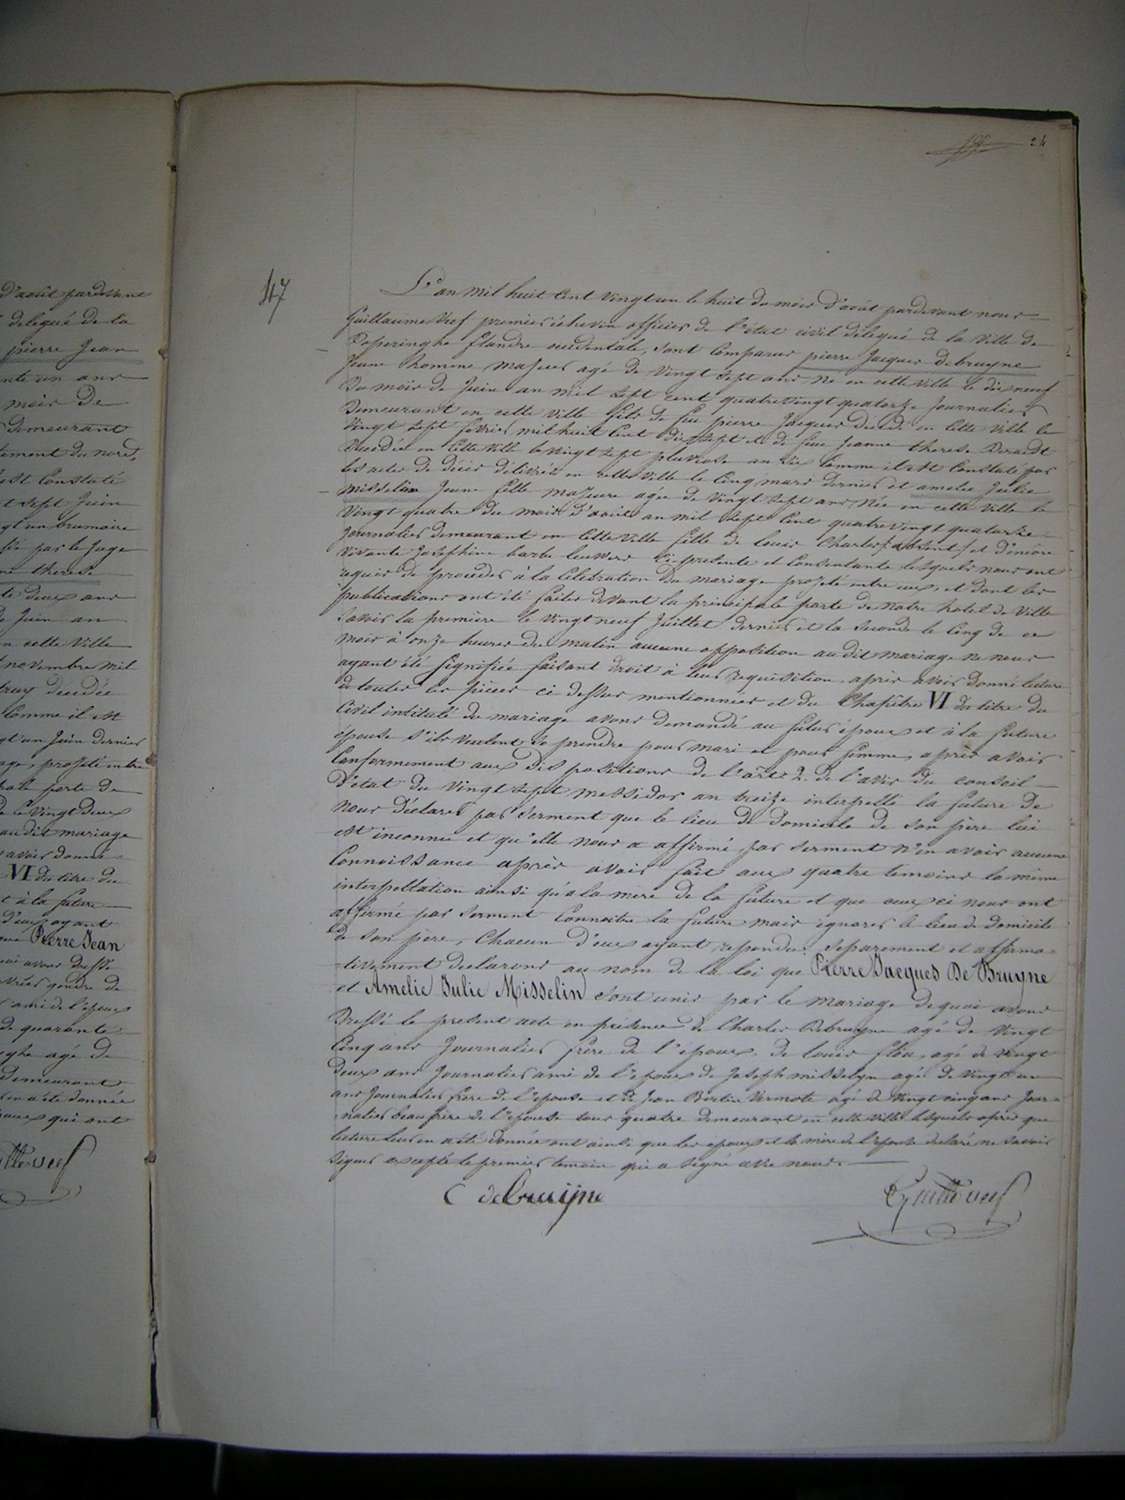 24
47
L'an mil huit cent vingt un le huit du mois d'août pardevant nous
Guillaume Veef premier échevin officier de l'état civil délégué de la ville de
Poperinghe flandre occidentale, sont comparus pierre Jacques debruyne
Jeune homme majeur agé de vingt sept ans né en cette ville le dix neuf
du mois de Juin an mil sept cent quatre vingt quatorze Journalier
demeurant en cette ville fils de feu pierre Jacques décédé en cette ville le
vingt sept fevrier mil huit cent dix sept et de feue Jeanne therese
décédée en cette ville le vingt sept pluviose an dix comme il est constaté par
les actes de décès délivrés en cette ville le cinq mars dernier et amelie Julie
misselin Jeune fille majeure agée de vingt sept ans Née en cette ville le
vingt quatre du mois d'août an mil sept cent quatre vingt quatorze
Journalier demeurant en cette ville fille de louis Charles (absent) et d'encore
vivante Josephine barbe leuwers ci presente et consentante lesquels nous ont
requis de proceder à la célébration du mariage projeté entre eux, et dont les
publications ont été faites devant la principale porte de notre hotel de ville
savoir la première le vingt neuf Juillet dernier et la seconde le cinq de ce
mois à onze heures du matin aucune opposition audit mariage ne nous
ayant été signifiée faisant droit à leur requisition, après avoir donné lecture
de toutes les pièces ci dessus mentionnées et du Chapître VI du titre du
Civil intitulé du mariage avons demandé au futur époux et à la future
épouse s'ils veulent se prendre pour mari et pour femme, après avoir
Conformement aux dispositions de l'art 2 de l'avis du conseil
D'état du vingt sept messidor an treize interpellé la future de
nous déclarer par serment que le lieu du domicile de son père lui
est inconnu et qu'elle nous a affirmé par serment n'en avoir aucune
Connoissance après avoir fait aux quatre temoins la même
interpellation ainsi qu'a la mere de la future et que ceux ci nous ont
affirmé par serment connoitre la future mais ignorer le lieu de domicile
de son pere, Chacun d'eux ayant repondu separement et affirma-
-tivement declarons au nom de la loi que Pierre Jacques De Bruyne
et Amelie Julie Misselin sont unis par le mariage de quoi avons
Dressé le present acte en présence de Charles Debruyne agé de vingt
Cinq ans Journalier frère de l'époux, de louis agé de vingt
deux ans Journalier ami de l'époux de Joseph misselyn agé de vingt un
ans Journalier frère de l'épouse et de Jean Bertin Vermote agé de vingt cinq ans Jour-
-nalier beaufrère de l'épouse tous quatre demeurant en cette ville lesquels après que
lecture leur en a été donnée ont ainsi que les époux et la mère de l'épouse declaré ne savoir
signer excepté le premier temoin qui a signé avec nous.
C debruijne
d'août pardevant
delegué de la
pierre Jean
ente un ans
mois de
demeurant
est constaté
t sept Juin
gt un brumaire
fié par le Juge
ne therese
te deux ans
de Juin an
n cette ville
novembre mil
décédée
Comme il est
gt un Juin dernier
age projeté entre
pale porte de
e le vingt deux
au dit mariage
avoir donné
VI du titre du
t à la future
d'eux ayant
que Pierre Jean
de
ami de l'époux
de quarante
nghe agé de
demeurant
en a été donnée
époux qui ont